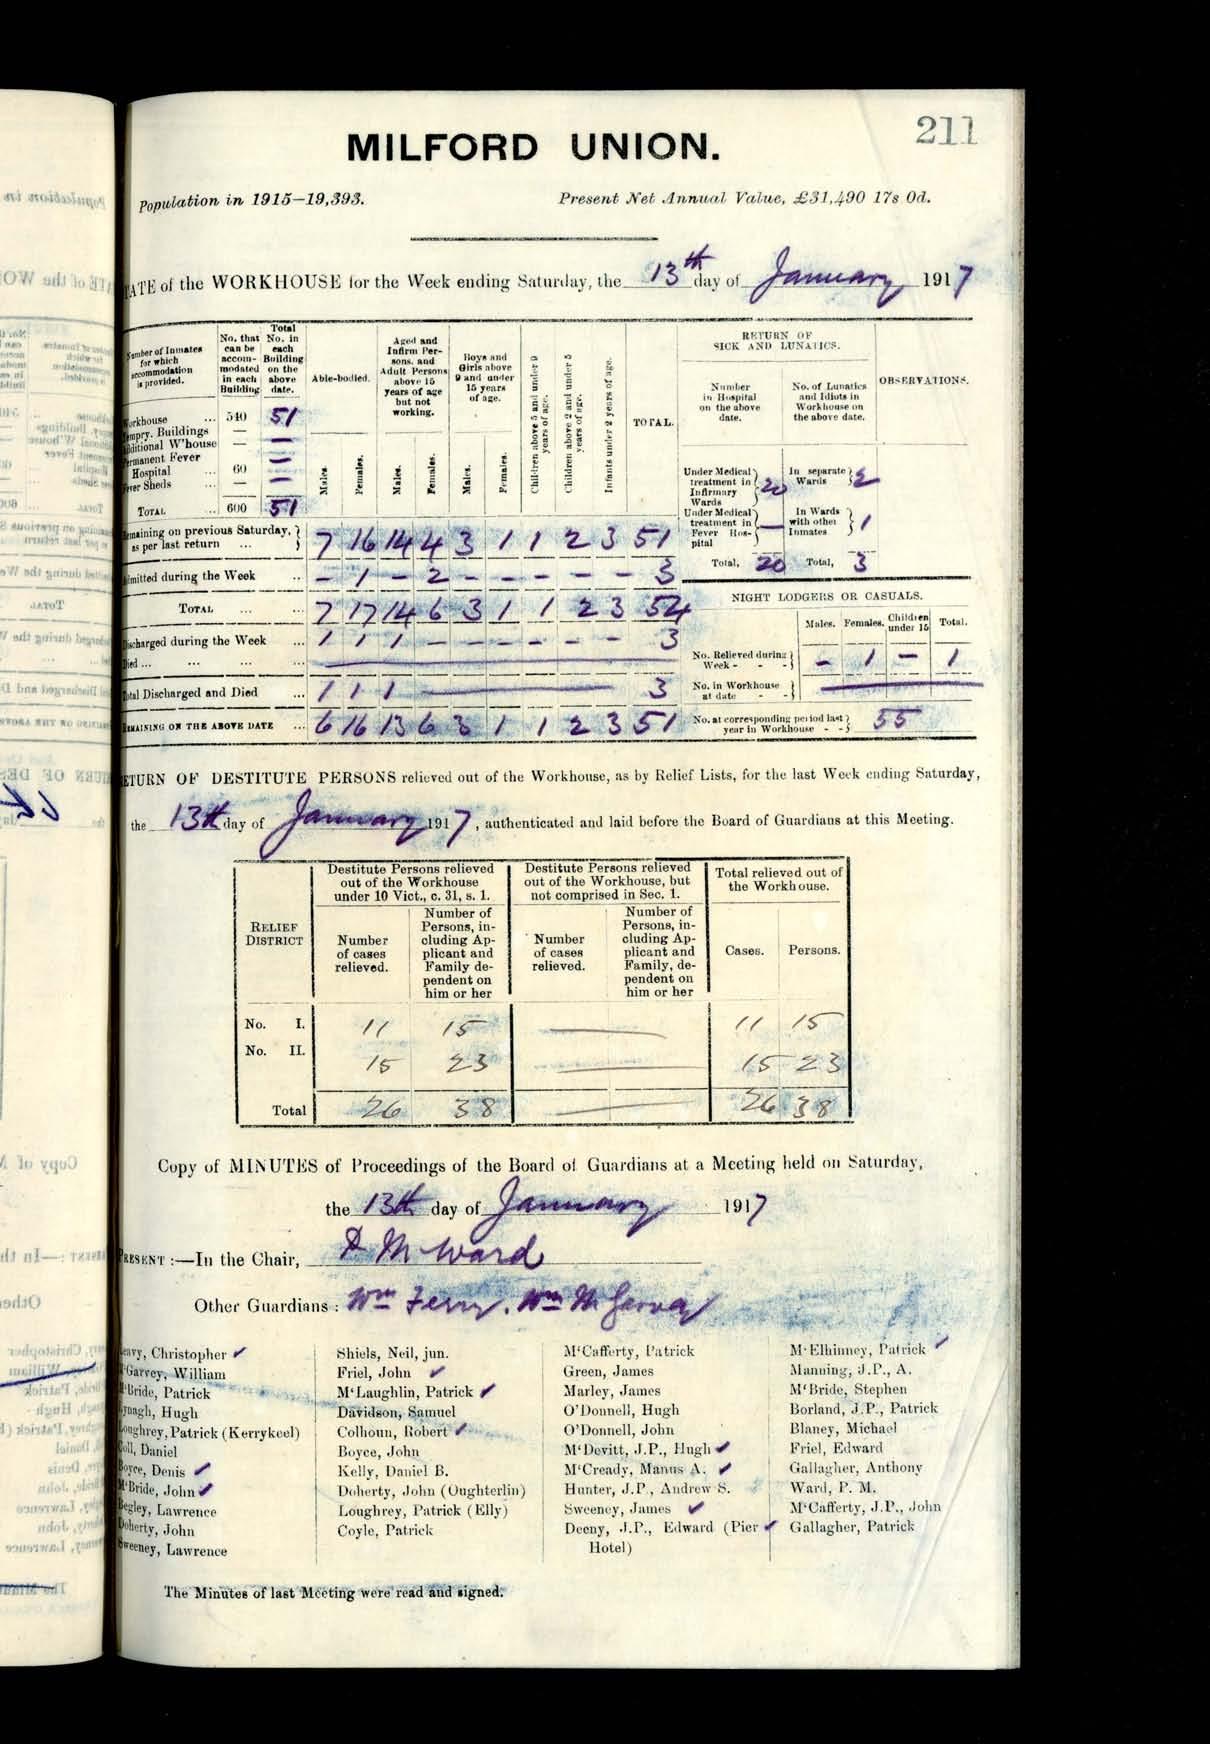 211
MILFORD UNION.
Population in 1915—19,393. Present Net Annual Value, £31,490 17s 0d.
TATE of the WORKHOUSE for the Week ending Saturday, the 13th day of January 1917
Number of Inmates for which accommodation is provided.
No. that can be accom- modated in each Building
Total No. in each Building on the above date.
Able-bodied.
Aged and Infirm Per- sons, and Adult Persons above 15 years of age but not working.
Boys and Girls above 9 and under 15 years of age.
Children above 5 and under 9 years of age.
Children above 2 and under 5 years of age.
Infants under 2 years of age.
TOTAL.
Males. Females. Males. Females. Males. Females.
Workhouse ... 540 51
Tempry. Buildings — —
Additional W'house — —
Permanent Fever Hospital ... 60 —
Fever Sheds ... — —
TOTAL ... 600 51
Remaining on previous Saturday, as per last return ... 7 16 14 4 3 1 1 2 3 51
Admitted during the Week .. - 1 - 2 - - - - - 3
TOTAL ... ... 7 17 14 6 3 1 1 2 3 54
Discharged during the Week ... 1 1 1 - - - - - - 3
Died ... ... ... ...
Total Discharged and Died ... 1 1 1 — 3
REMAINING ON THE ABOVE DATE ... 6 16 13 6 3 1 1 2 3 51
RETURN OF SICK AND LUNATICS.
OBSERVATIONS.
Number in Hospital on the above date.
No. of Lunatics and Idiots in Workhouse on the above date.
Under Medical treatment in Infirmary Wards 20
In separate Wards 2
Under Medical treatment in Fever Hos- pital —
In Wards with other Inmates 1
Total, 20 Total, 3
NIGHT LODGERS OR CASUALS.
Males. Females. Children under 15 Total.
No. Relieved during Week - - - - 1 - 1
No. in Workhouse at date - -
No. at corresponding period last year in Workhouse - - 55
RETURN OF DESTITUTE PERSONS relieved out of the Workhouse, as by Relief Lists, for the last Week ending Saturday,
the 13th day of January 1917, authenticated and laid before the Board of Guardians at this Meeting.
RELIEF DISTRICT
Destitute Persons relieved out of the Workhouse under 10 Vict., c. 31, s. 1.
Destitute Persons relieved out of the Workhouse, but not comprised in Sec. 1.
Total relieved out of the Workhouse.
Number of cases relieved.
Number of Persons, in- cluding Ap- plicant and Family de- pendent on him or her
Number of cases relieved.
Number of Persons, in- cluding Ap- plicant and Family, de- pendent on him or her
Cases. Persons.
No. I. 11 15 — 11 15
No. II. 15 23 — 15 23
Total 26 38 — 26 38
Copy of MINUTES of Proceedings of the Board of Guardians at a Meeting held on Saturday,
the 13th day of January 1917
PRESENT :—In the Chair, D McWard
Other Guardians : Wm Ferry. Wm McGarvey
eavy, Christopher ✓
M'Garvey, William
M'Bride, Patrick
ynagh, Hugh
Loughrey, Patrick (Kerrykeel)
Coll, Daniel
Boyce, Denis ✓
M'Bride, John ✓
Begley, Lawrence
Doherty, John
Sweeney, Lawrence
Shiels, Neil, jun.
Friel, John ✓
M'Laughlin, Patrick ✓
Davidson, Samuel
Colhoun, Robert ✓
Boyce, John
Kelly, Daniel B.
Doherty, John (Oughterlin)
Loughrey, Patrick (Elly)
Coyle, Patrick
M'Cafferty, Patrick
Green, James
Marley, James
O'Donnell, Hugh
O'Donnell, John
M'Devitt, J.P., Hugh ✓
M'Cready, Manus A. ✓
Hunter, J.P., Andrew S.
Sweeney, James ✓
Deeny, J.P., Edward (Pier ✓
Hotel)
M'Elhinney, Patrick ✓
Manning, J.P., A.
M'Bride, Stephen
Borland, J.P., Patrick
Blaney, Michael
Friel, Edward
Gallagher, Anthony
Ward, P. M.
M'Cafferty, J.P., John
Gallagher, Patrick
The Minutes of last Meeting were read and signed.